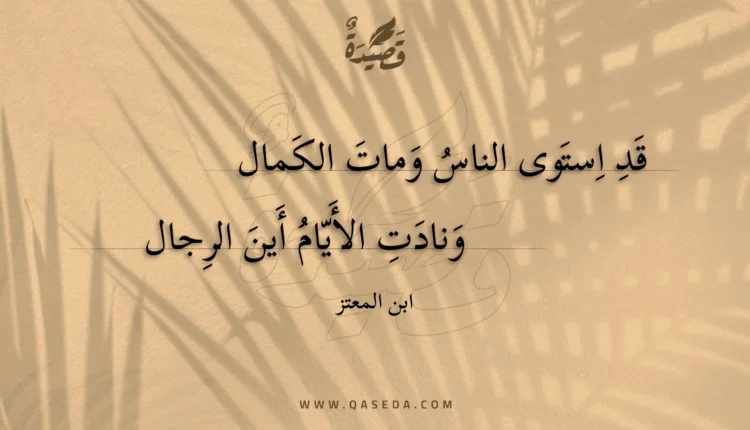 قَصِيْدَةٌ
قَدِ اِستَوى الناسُ وَماتَ الكَمال
وَنادَتِ الأَيّامُ أَينَ الرِجال
ابن المعتز
WWW.QASEDA.COM